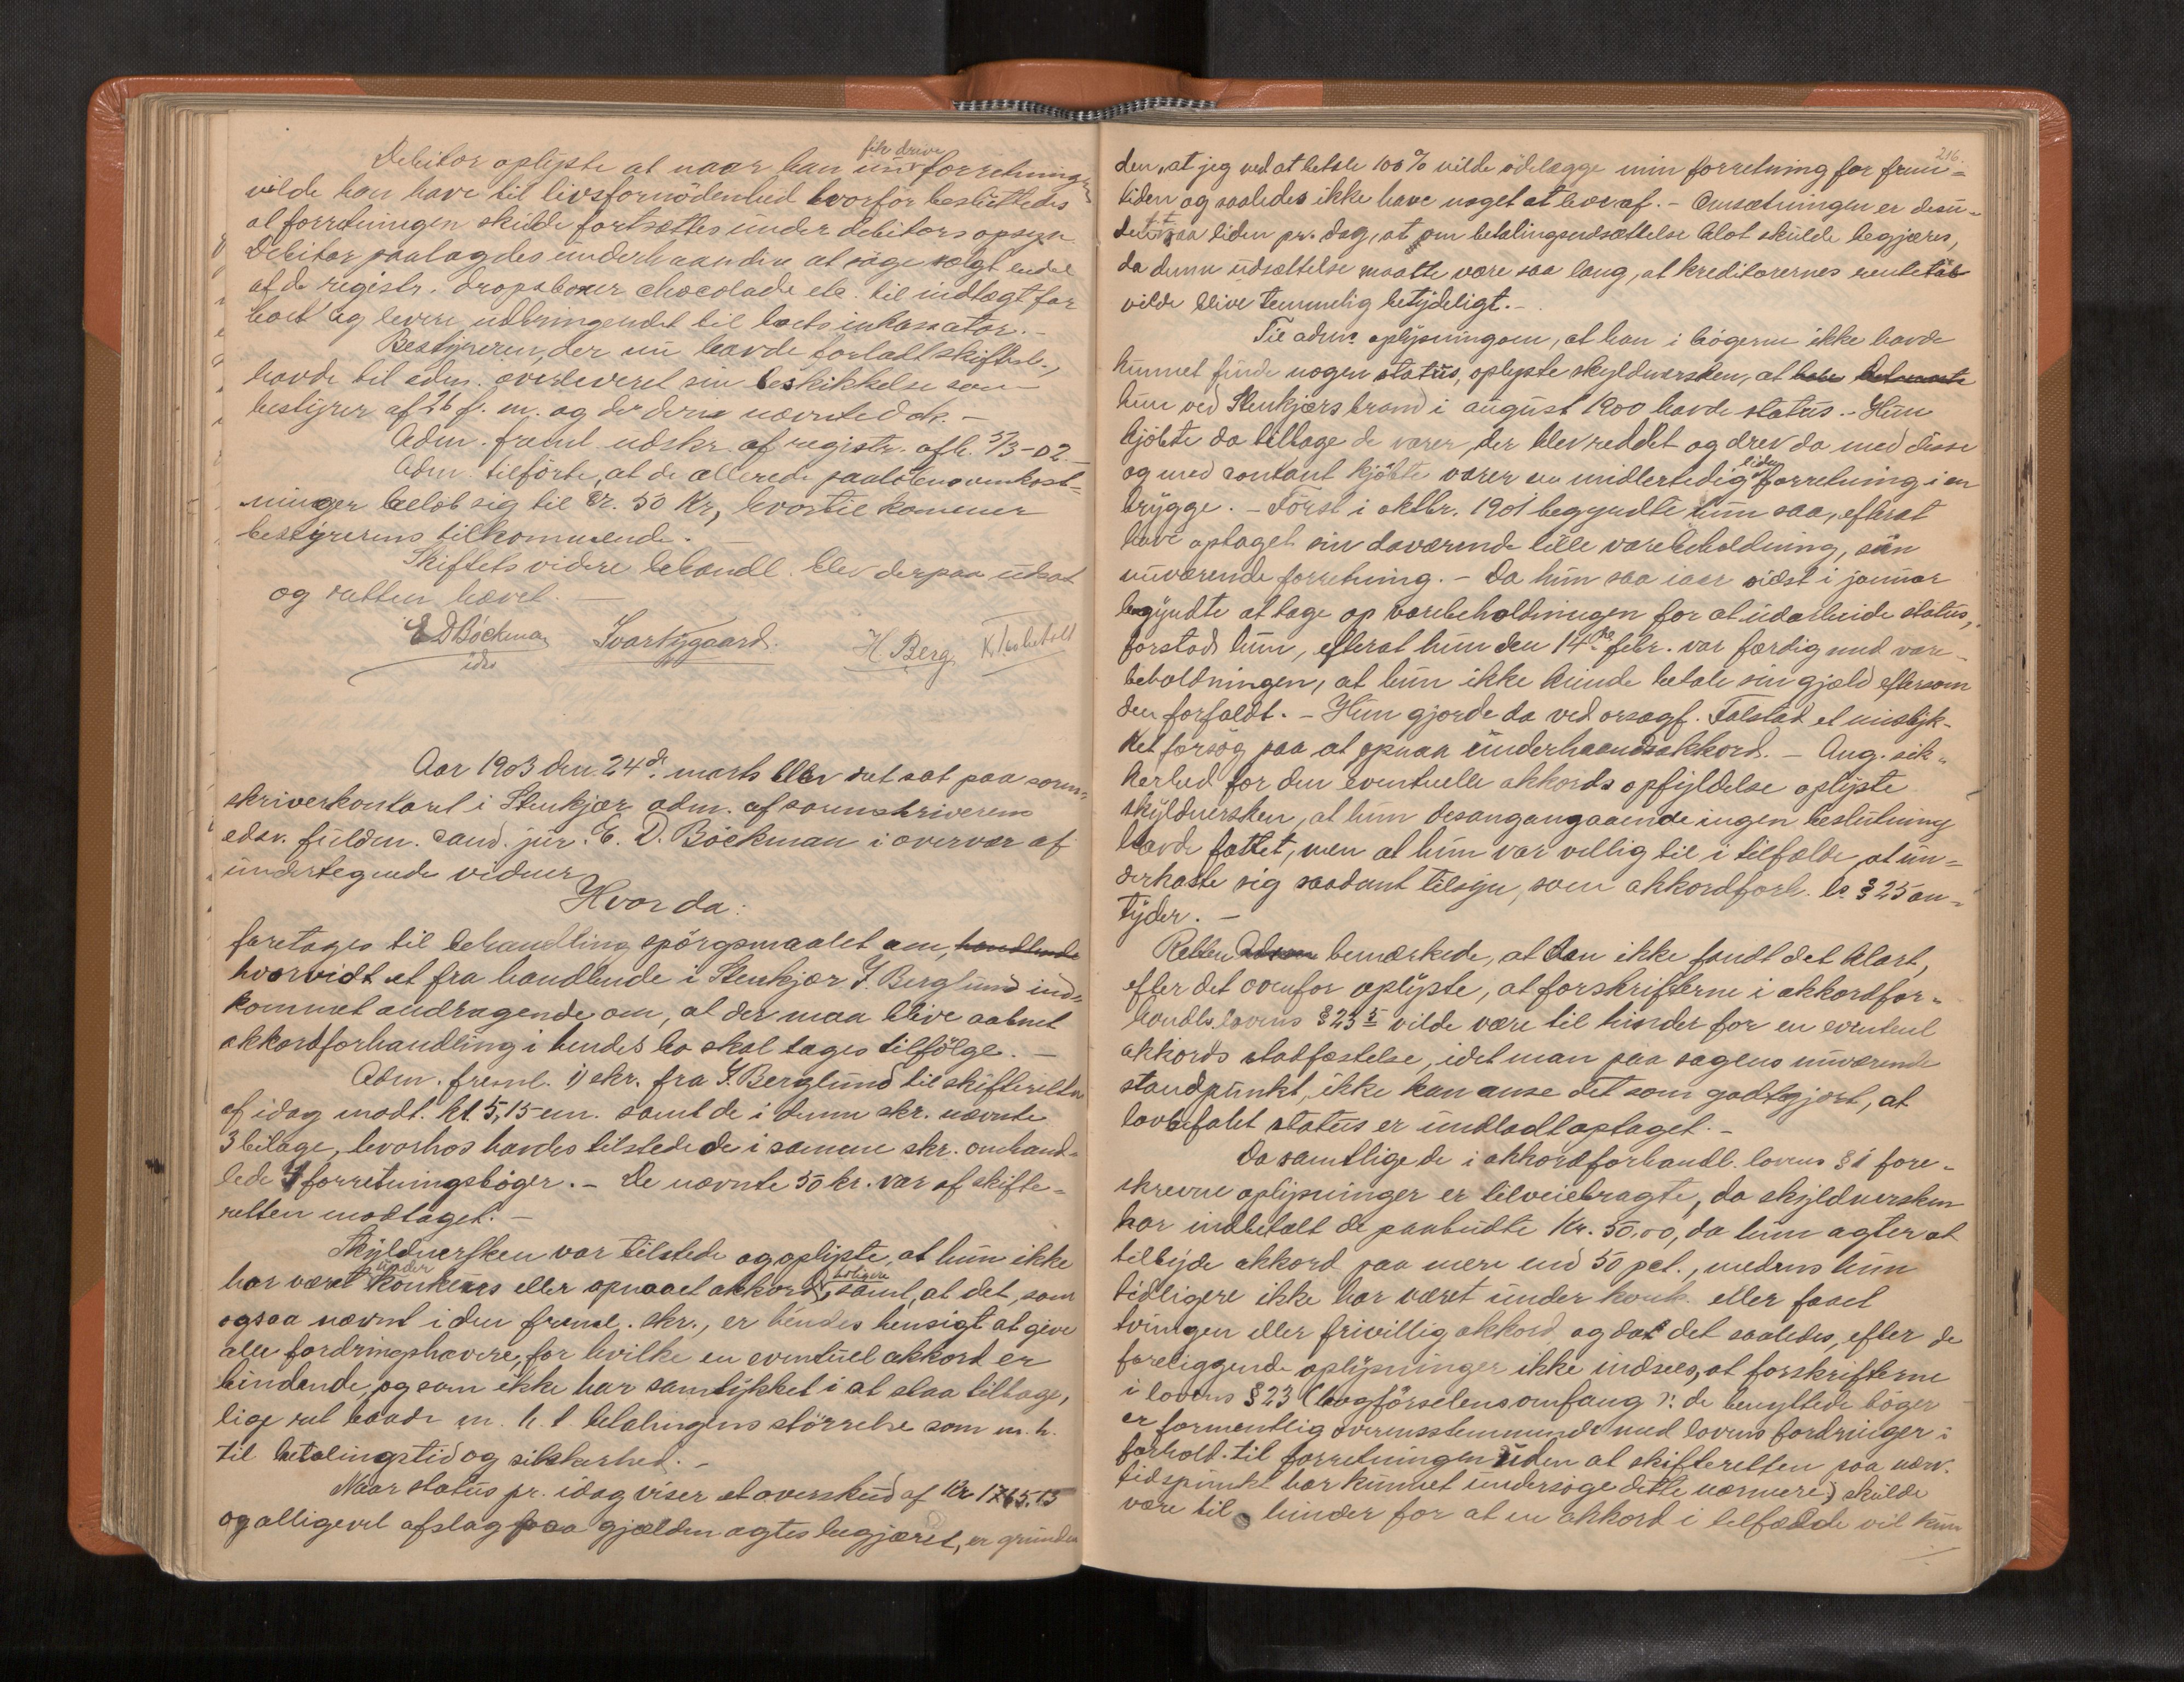 Debitor oplyste at naar han nu fik drive forretningen
vilde han have til livsfornödenhed hvorfor besluttedes
at forretningen skulde fortsættes under debitors opsyn.
Debitor paalagdes underhaanden at söge solgt endel
af de registr. dropsboxer chocolade etc. til indtægt for
boet og levere udbringendet til boets inkassator. -
Bestyreren, der nu havde forladt skifter.,
havde til adm. overleveret sin beskikkelse som
bestyrer af 26 f. m. og de deri nævnte dok. -
Adm. freml. udskr. af registr. afh. 5/3-02. -
Adm. tilförte, at de allerede paalöbne omkost=
ninger belöb sig til ca. 50 Kr, hvortil kommer
bestyrerens tilkommende. -
Skiftets videre behandl. blev derpaa udsat
og retten hævet. -
E D Böckman Svartÿgaard. H Berg
ids
Aar 1903 den 24de marts blev ret sat paa soren=
skriverkontoret i Stenkjær adm. af sorenskriverens
edsv. fuldm. cand. jur. E. D. Böckman i overvær af
undertegnede vidner
Hvor da:
foretages til behandling spörgsmaalet om, handlende
hvorvidt et fra handlende i Stenkjær J. Berglund ind=
kommet andragende om, at der maa blive aabnet
akkordforhandling i hendes bo skal tages tilfölge. -
Adm. freml. 1) skr. fra J. Berglund til skifteretten
af idag modt. kl. 5,15 em. samt de i denne skr. nævnte
3 bilage, hvorhos havdes tilstede de i samme skr. omhand=
lede 4 forretningsböger. - De nævnte 50 kr. var af skifte=
retten modtaget. -
Skyldnersken var tilstede og oplyste, at hun ikke
har været under konkurs eller opnaaet akkord tidligere, samt, at det, som
ogsaa nævnt i den freml. skr., er hendes hensigt at give
alle fordringshavere, for hvilke en eventuel akkord er
bindende, og som ikke har samtykket i at staa tilbage,
lige ret baade m. h. t. betalingens störrelse som m. h.
til betalingstid og sikkerhed. -
Naar status pr. idag viser et overskud af Kr 1765.15
og alligevel afslag paa gjælden agtes begjæret, er grunden
216.
den, at jeg ved at betale 100% vilde ödelægge min forretning for frem=
tiden og saaledes ikke have noget at leve af. - Omsætningen er desu=
den saa liden pr. dag, at om betalingsudsættelse blot skulde begjæres,
da denne udsættelse maatte være saa lang, at kreditorernes rentetab
vilde blive temmelig betydeligt. -
Til adm. oplysning om, at han i bögerne ikke havde
kunnet finde nogen status, oplyste skyldnersken, at
hun ved Stenkjærs brand i august 1900 havde status. - Hun
kjöbte da tilbage de varer, der blev reddet og drev da med disse
og med contant kjöbte varer en midlertidig liden forretning i en
brygge. - Först i oktbr. 1901 begyndte hun saa, efterat
have optaget sin daværende lille varebeholdning, sin
nuværende forretning. - Da hun saa iaar sidst i januar
begyndte at tage op varebeholdningen for at udarbeide status,
forstod hun, efterat hun den 14de febr. var færdig med vare=
beholdningen, at hun ikke kunde betale sin gjæld eftersom
den forfaldt. - Hun gjorde da ved orsagf. Falstad et mislyk=
ket forsög paa at opnaa underhaandsakkord. - Ang. sik=
kerhed for den eventuelle akkords opfyldelse oplyste
skyldnersken, at hun desangangaaende ingen beslutning
havde fattet, men at hun var villig til i tilfælde, at un=
derkaste sig saadant tilsyn, som akkordforh. ls. § 25 an=
tyder. -
Retten bemærkede, at den ikke fandt det klart,
efter det ovenfor oplyste, at forskrifterne i akkordfor=
handls.lovens § 23 5 vilde være til hinder for en eventuel
akkords stadfæstelse, idet man paa sagens nuværende
standpunkt, ikke kan anse det som godtgjort, at
lovbefalet status er undladt optaget. -
Da samtlige de i akkordforhandl. lovens § 1 fore=
skrevne oplysninger er tilveiebragte, da skyldnersken
har indbetalt de paabudte Kr. 50.00, da hun agter at
tilbyde akkord paa mere end 50 pct., medens hun
tidligere ikke har været under konk. eller faaet
tvungen eller frivillig akkord og da det saaledes, efter de
foreliggende oplysninger ikke indsees, at forskrifterne
i lovens § 23 (bogförselens omfang ɔ: de benyttede böger
er formentlig overensstemmende med lovens fordringer i
forhold til forretningen uden at skifteretten paa nærv.
tidspunkt har kunnet undersöge dette nærmere) skulde
være til hinder for at en akkord i tilfælde vil kun